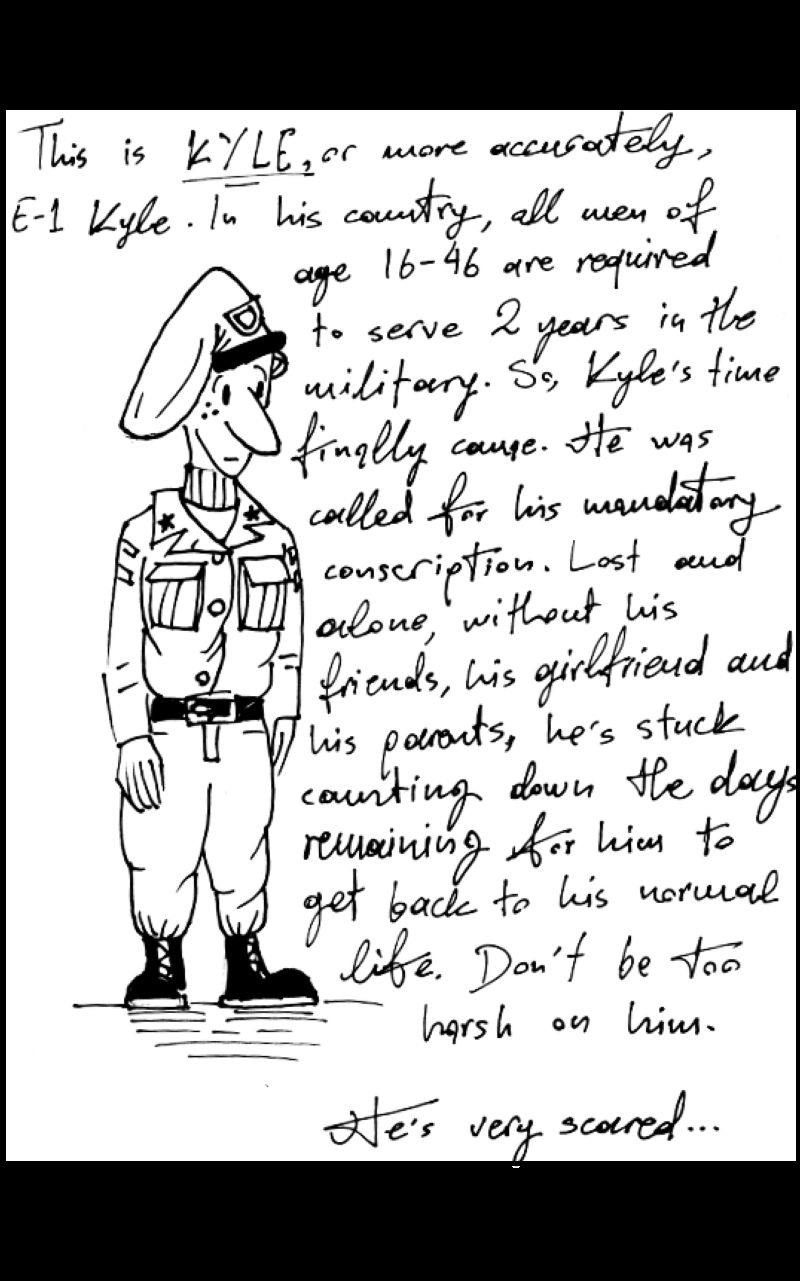 This is KYLE, or more accurately,
E-1 Kyle. In his country, all men of
age 16-46 are required
to serve 2 years in the
military. So, Kyle's time
finally came. He was
called for his mandatory
conscription. Lost and
alone, without his
friends, his girlfriend and
his parents, he's stuck
counting down the days
remaining for him to
get back to his normal
life. Don't be too
harsh on him.
He's very scared...